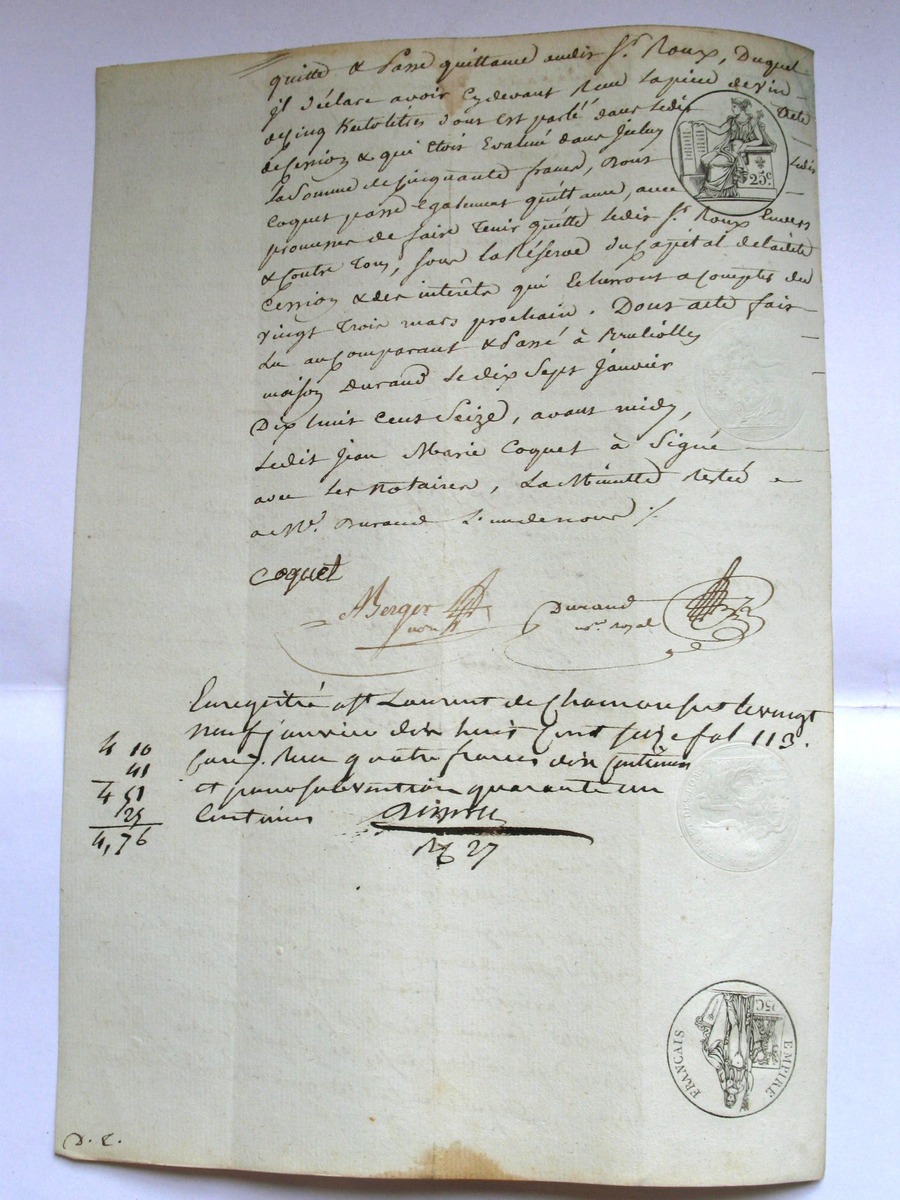 quitte & Passe quittance audit Sr. Roux, Duquel
il déclare avoir cy devant Reçu la pièce de vin
de cinq hectolitres dont est parlé dans ledit acte
de Cession & qui etoit Evalué dans jceluy
La Somme de Cinquante francs, dont ledit
Coquet passe Egalement quittance, avec
promesse de faire Tenir quitte ledit Sr. Roux Envers
& Contre Tous, sous la Réserve du Capital de ladite
Cession & des interêts qui Echerront a Compter du
vingt Trois mars prochain. Dont acte fait
Lu au Comparant & Passé à Brulióllé
maison Durand le dix Sept janvier
Dix huit cent Seize, avant midy,
Ledit jean Marie Coquet à Signé
avec les Notaires, La Minutte Restée
a Me. Durand L'un de nous ./.
Coquet
ABerger
nore
Durand
nre. royal
Enregistré a St Laurent de Chamousset le vingt
neuf janvier dix huit Cent seize fol 113.
Reçu quatre francs dix Centimes
et pour subvention quarante un
Centimes
4 10
41
4 51
25
4,76
No 27
D. E.
25c.
25C
EMPIRE
FRANCAIS